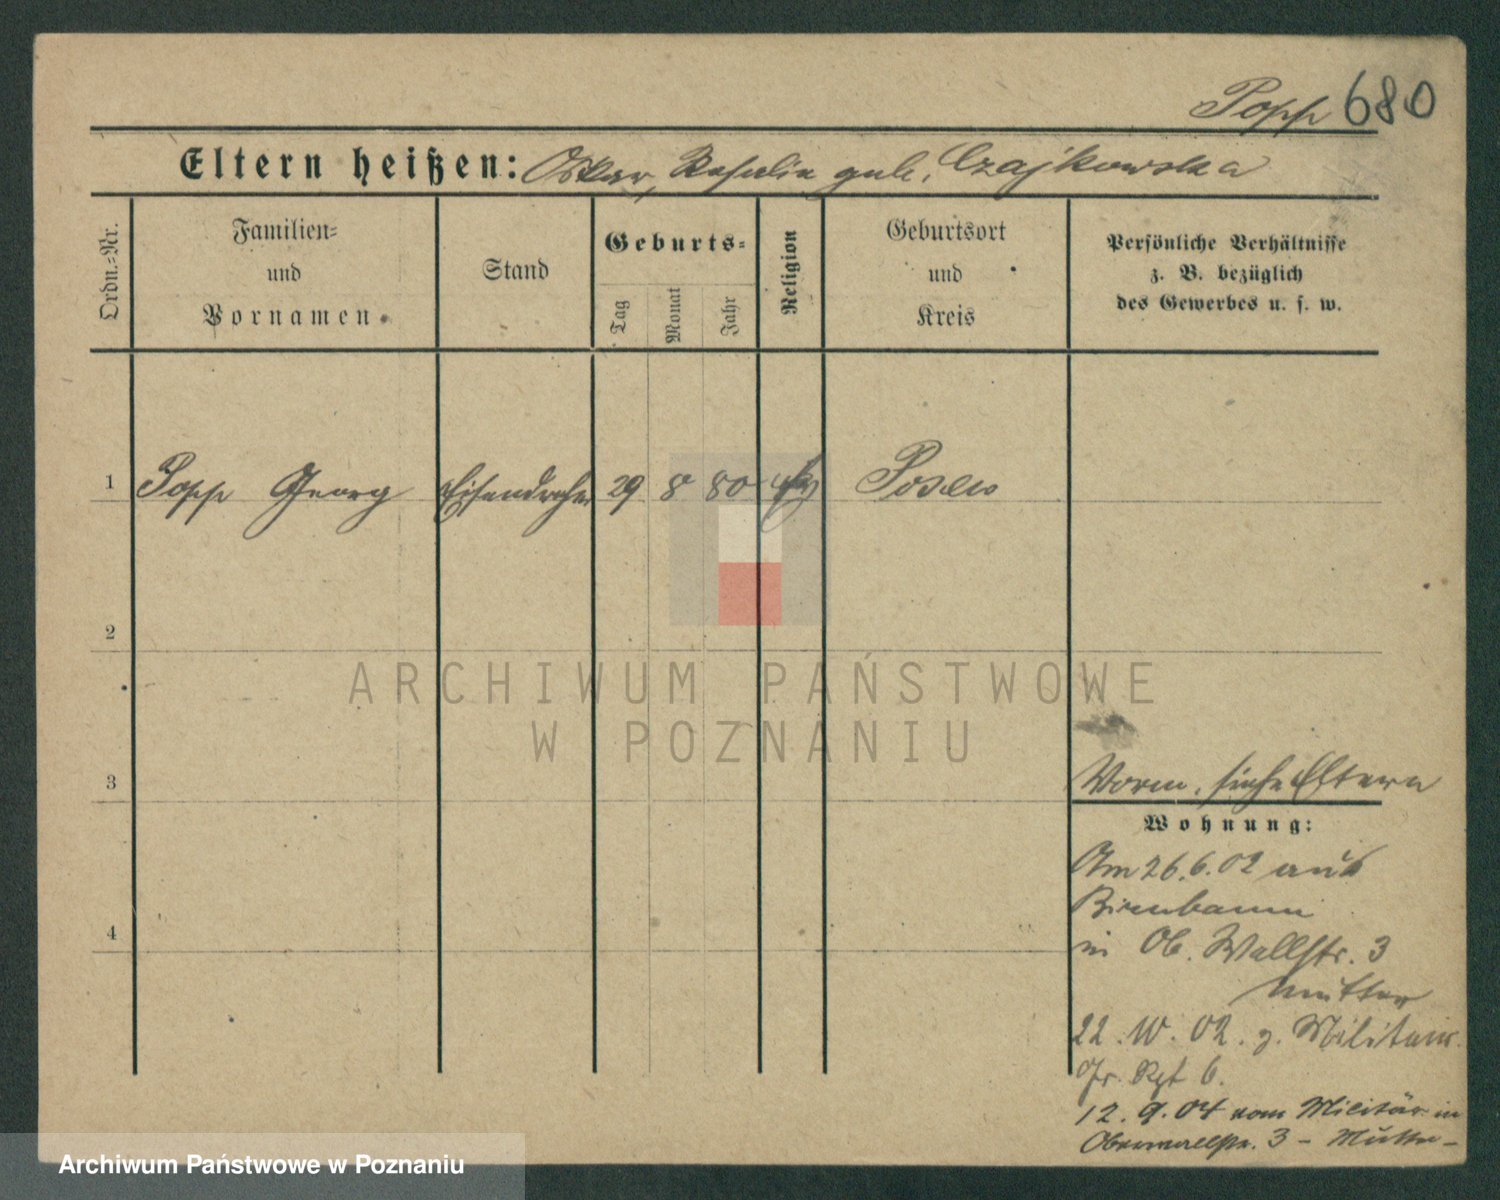 Popp 680
Eltern heißen: Oskar, Rosalie geb. Czajkowska
Ordn.=Nr.
Familien=
und
Vornamen
Stand
Geburts=
Tag
Monat
Jahr
Religion
Geburtsort
und
Kreis
Persönliche Verhältnisse
z. B. bezüglich
des Gewerbes u. s. w.
1 Popp Georg Eisendreher 29 8 80 Posen
2
ARCHIWUM PAŃSTWOWE
W POZNANIU
3
Vorm. siehe Eltern
Wohnung:
Am 26.6.02 aus
Birnbaum
in Ob. Wallstr. 3
Mutter
4
22. 10. 02. z. Militair.
Gr. Rgt 6.
12. 9. 04 vom Militär in
Oberwallstr. 3 – Mutter –
Archiwum Państwowe w Poznaniu